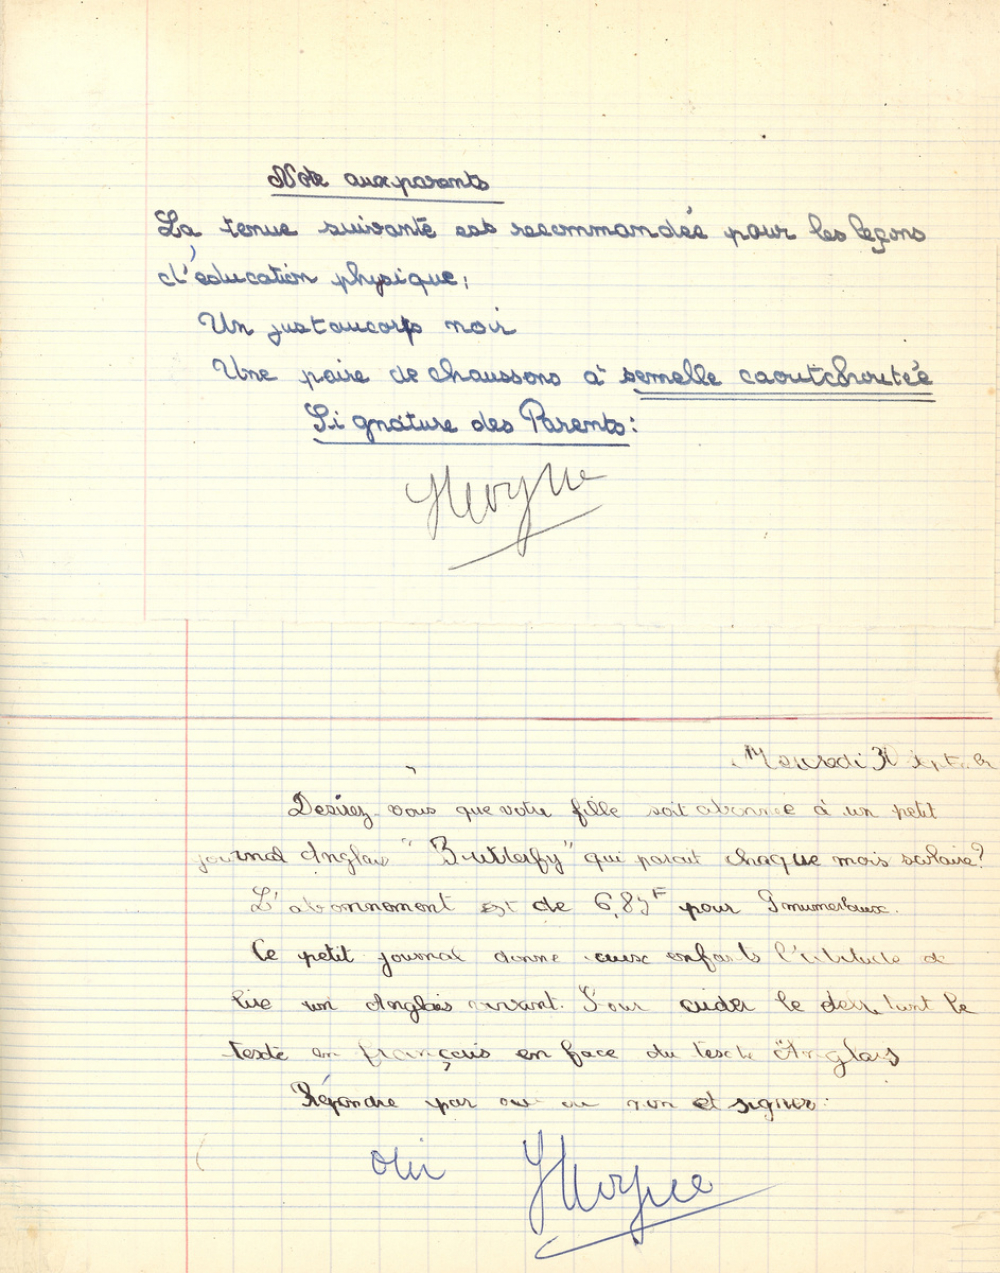 Note aux parents
La tenue suivante est recommandée pour les leçons
d'éducation physique;
Un justaucorps noir
Une paire de chaussons à semelle caoutchoutée
Signature des Parents:
Mercredi 30 sept.
Desirez-vous que votre fille soit abonnée à un petit
journal Anglais "Butterfly" qui parait chaque mois scolaire?
L'abonnement est de 6,85F pour 9 numeraux.
Ce petit journal donne aux enfants l'habitude de
lire un Anglais vivant. Pour aider le
texte en français en face du texte Anglais
Répondre par oui ou non et signer:
oui